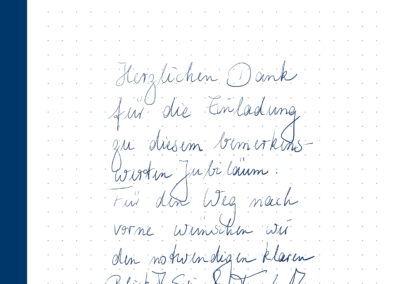 Herzlichen Dank
für die Einladung
zu diesem bemerkens-
werten Jubiläum.
Für den Weg nach
vorne wünschen wir
den notwendigen klaren